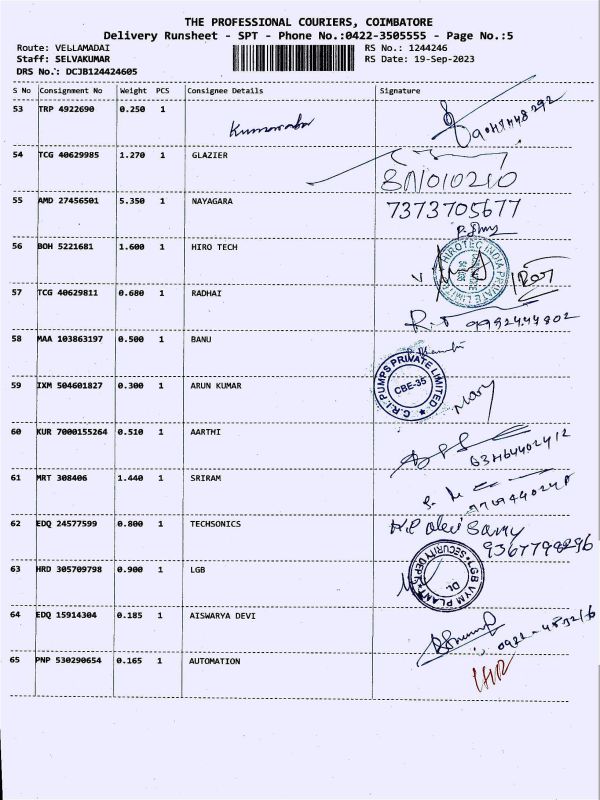 THE PROFESSIONAL COURIERS, COIMBATORE
Delivery Runsheet - SPT - Phone No.:0422-3505555 - Page No.:5
Route: VELLAMADAI RS No.: 1244246
Staff: SELVAKUMAR RS Date: 19-Sep-2023
DRS No.: DCJB124424605
S No Consignment No Weight PCS Consignee Details Signature
53 TRP 4922690 0.250 1
54 TCG 40629985 1.270 1 GLAZIER
8N010210
55 AMD 27456501 5.350 1 NAYAGARA 7373705677
56 BOH 5221681 1.600 1 HIRO TECH
HIROTEC INDIA PRIVATE LIMITED
57 TCG 40629811 0.680 1 RADHAI
9992444802
58 MAA 103863197 0.500 1 BANU
59 IXM 504601827 0.300 1 ARUN KUMAR
C.R.I PUMPS PRIVATE LIMITED
CBE-35
Mary
60 KUR 7000155264 0.510 1 AARTHI
61 MRT 308406 1.440 1 SRIRAM
62 EDQ 24577599 0.800 1 TECHSONICS
63 HRD 305709798 0.900 1 LGB
LGB VYM PLANT SECURITY DEPT.
64 EDQ 15914304 0.185 1 AISWARYA DEVI
65 PNP 530290654 0.165 1 AUTOMATION